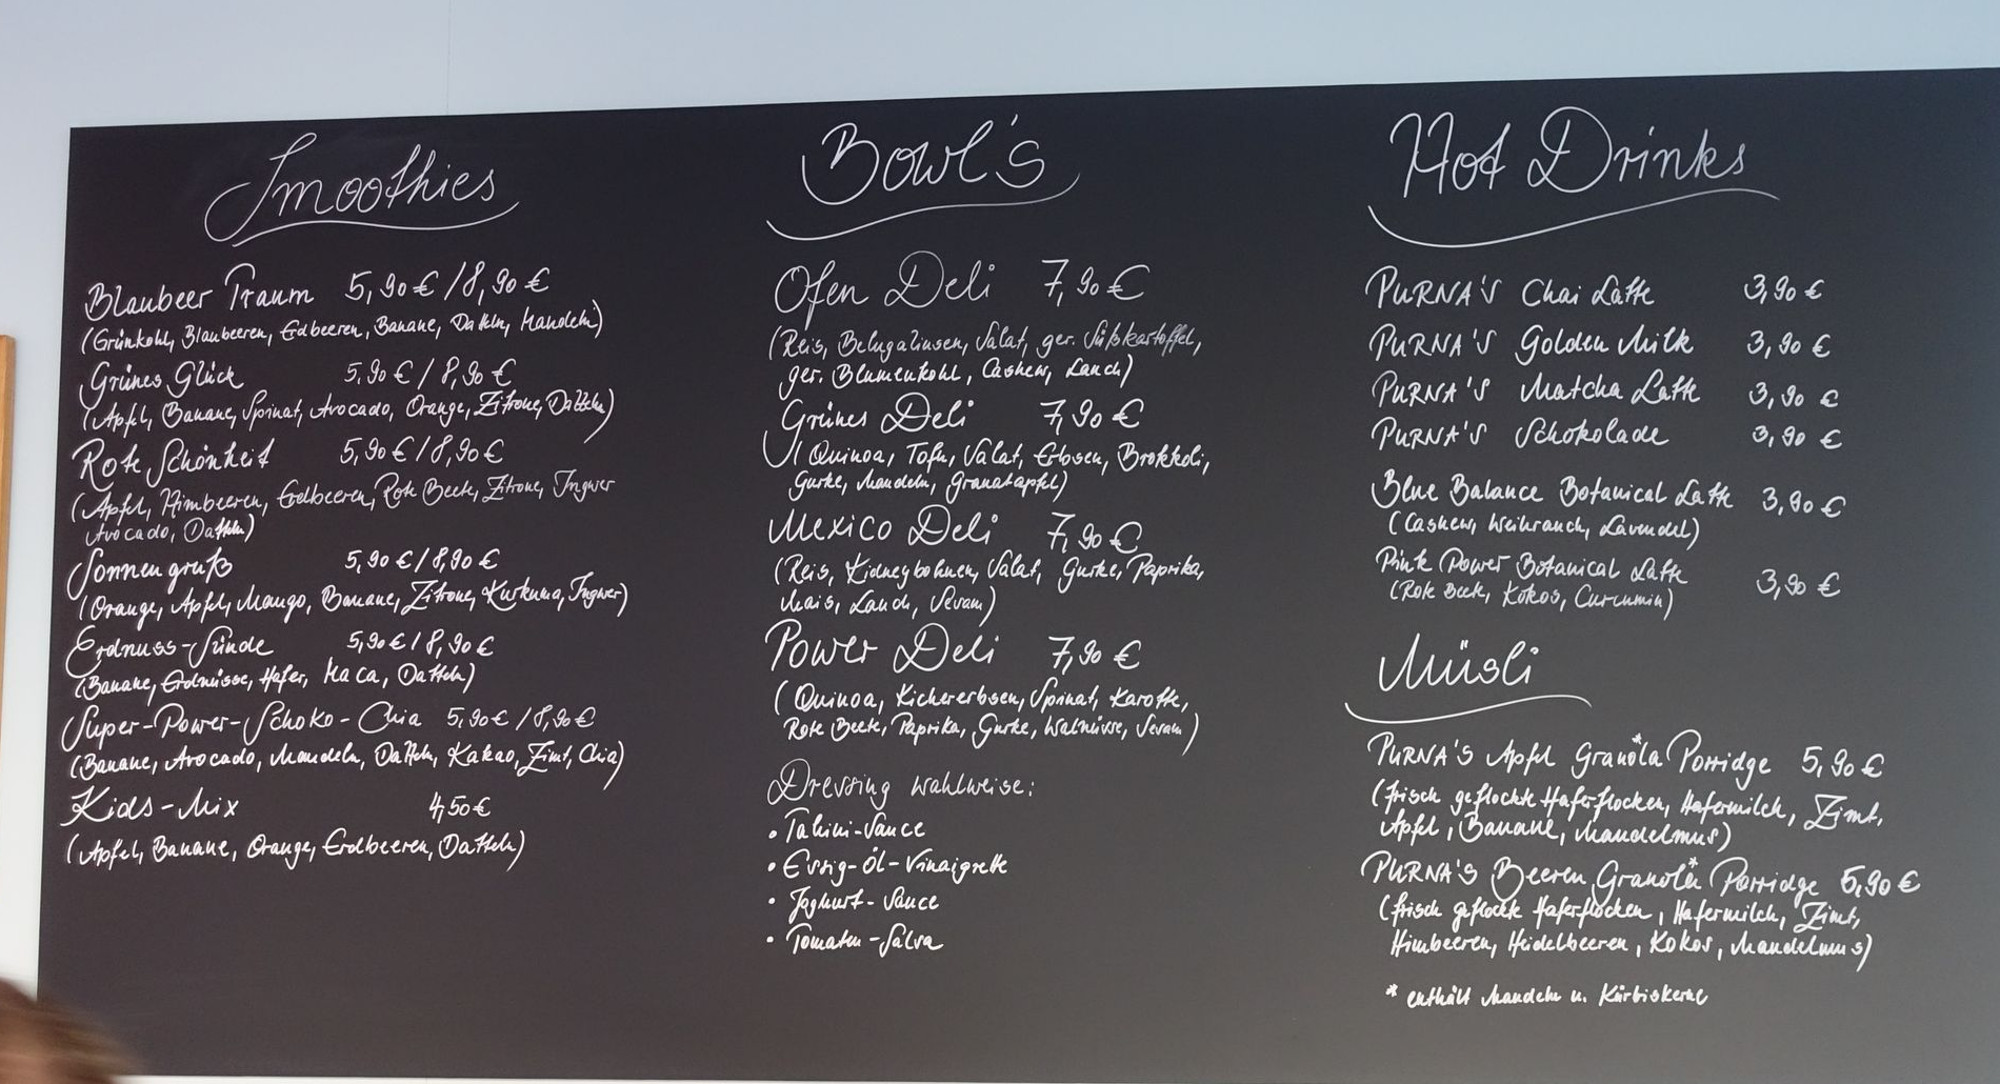 Smoothies
Blaubeer Traum 5,90 € / 8,90 €
(Grünkohl, Blaubeeren, Erdbeeren, Banane, Datteln, Mandeln)
Grünes Glück 5,90 € / 8,90 €
(Apfel, Banane, Spinat, Avocado, Orange, Zitrone, Datteln)
Rote Schönheit 5,90 € / 8,90 €
(Apfel, Himbeeren, Erdbeeren, Rote Beete, Zitrone, Ingwer
Avocado, Datteln)
Sonnengruß 5,90 € / 8,90 €
(Orange, Apfel, Mango, Banane, Zitrone, Kurkuma, Ingwer)
Erdnuss-Sünde 5,90 € / 8,90 €
(Banane, Erdnüsse, Hafer, Maca, Datteln)
Super-Power-Schoko-Chia 5,90 € / 8,90 €
(Banane, Avocado, Mandeln, Datteln, Kakao, Zimt, Chia)
Kids-Mix 4,50 €
(Apfel, Banane, Orange, Erdbeeren, Datteln)
Bowl's
Ofen Deli 7,90 €
(Reis, Belugalinsen, Salat, ger. Süßkartoffel,
ger. Blumenkohl, Cashew, Lauch)
Grünes Deli 7,90 €
(Quinoa, Tofu, Salat, Erbsen, Brokkoli,
Gurke, Mandeln, Granatapfel)
Mexico Deli 7,90 €
(Reis, Kidneybohnen, Salat, Gurke, Paprika,
Mais, Lauch, Sesam)
Power Deli 7,90 €
(Quinoa, Kichererbsen, Spinat, Karotte,
Rote Beete, Paprika, Gurke, Walnüsse, Sesam)
Dressing wahlweise:
• Tahini-Sauce
• Essig-Öl-Vinaigrette
• Joghurt-Sauce
• Tomaten-Salsa
Hot Drinks
PURNA'S Chai Latte 3,90 €
PURNA'S Golden Milk 3,90 €
PURNA'S Matcha Latte 3,90 €
PURNA'S Schokolade 3,90 €
Blue Balance Botanical Latte 3,90 €
(Cashew, Weihrauch, Lavendel)
Pink Power Botanical Latte 3,90 €
(Rote Beete, Kokos, Curcumin)
Müsli
PURNA'S Apfel Granola* Porridge 5,90 €
(frisch geflockte Haferflocken, Hafermilch, Zimt,
Apfel, Banane, Mandelmus)
PURNA'S Beeren Granola* Porridge 5,90 €
(frisch geflockte Haferflocken, Hafermilch, Zimt,
Himbeeren, Heidelbeeren, Kokos, Mandelmus)
* enthält Mandeln u. Kürbiskerne